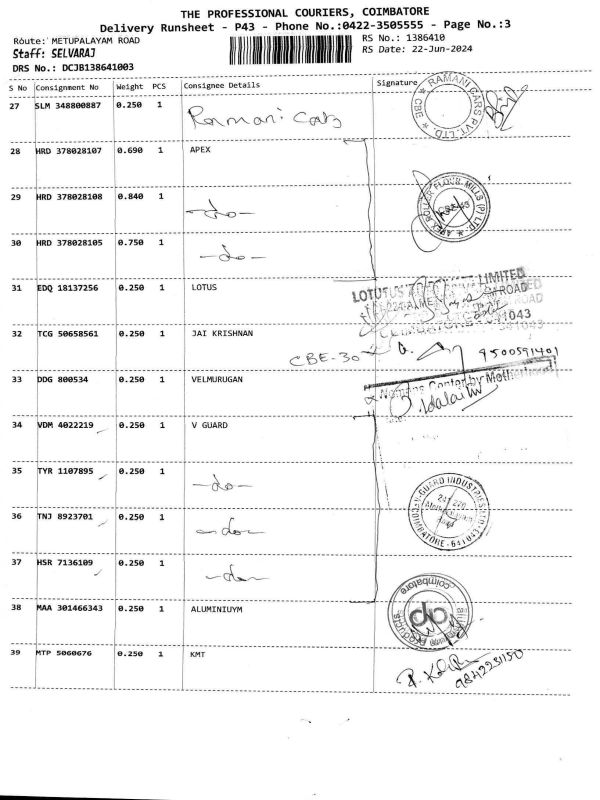 THE PROFESSIONAL COURIERS, COIMBATORE
Delivery Runsheet - P43 - Phone No.:0422-3505555 - Page No.:3
Route: METUPALAYAM ROAD RS No.: 1386410
Staff: SELVARAJ RS Date: 22-Jun-2024
DRS No.: DCJB138641003
S No Consignment No Weight PCS Consignee Details Signature
27 SLM 348800887 0.250 1 Ramani Cars
RAMANI CARS PVT. LTD. * CBE *
28 HRD 378028107 0.690 1 APEX
29 HRD 378028108 0.840 1 -do-
ROLLER FLOUR MILLS (P) LTD.
30 HRD 378028105 0.750 1 -do-
31 EDQ 18137256 0.250 1 LOTUS
LIMITED
ROAD
641043
32 TCG 50658561 0.250 1 JAI KRISHNAN
CBE-30 9500591401
33 DDG 800534 0.250 1 VELMURUGAN
Center by Motherhood
34 VDM 4022219 0.250 1 V GUARD
35 TYR 1107895 0.250 1 -do-
V-GUARD INDUSTRIES LTD
COIMBATORE - 641043
36 TNJ 8923701 0.250 1 -do-
37 HSR 7136109 0.250 1 -do-
38 MAA 301466343 0.250 1 ALUMINIUYM
Coimbatore
39 MTP 5060676 0.250 1 KMT
9842231150